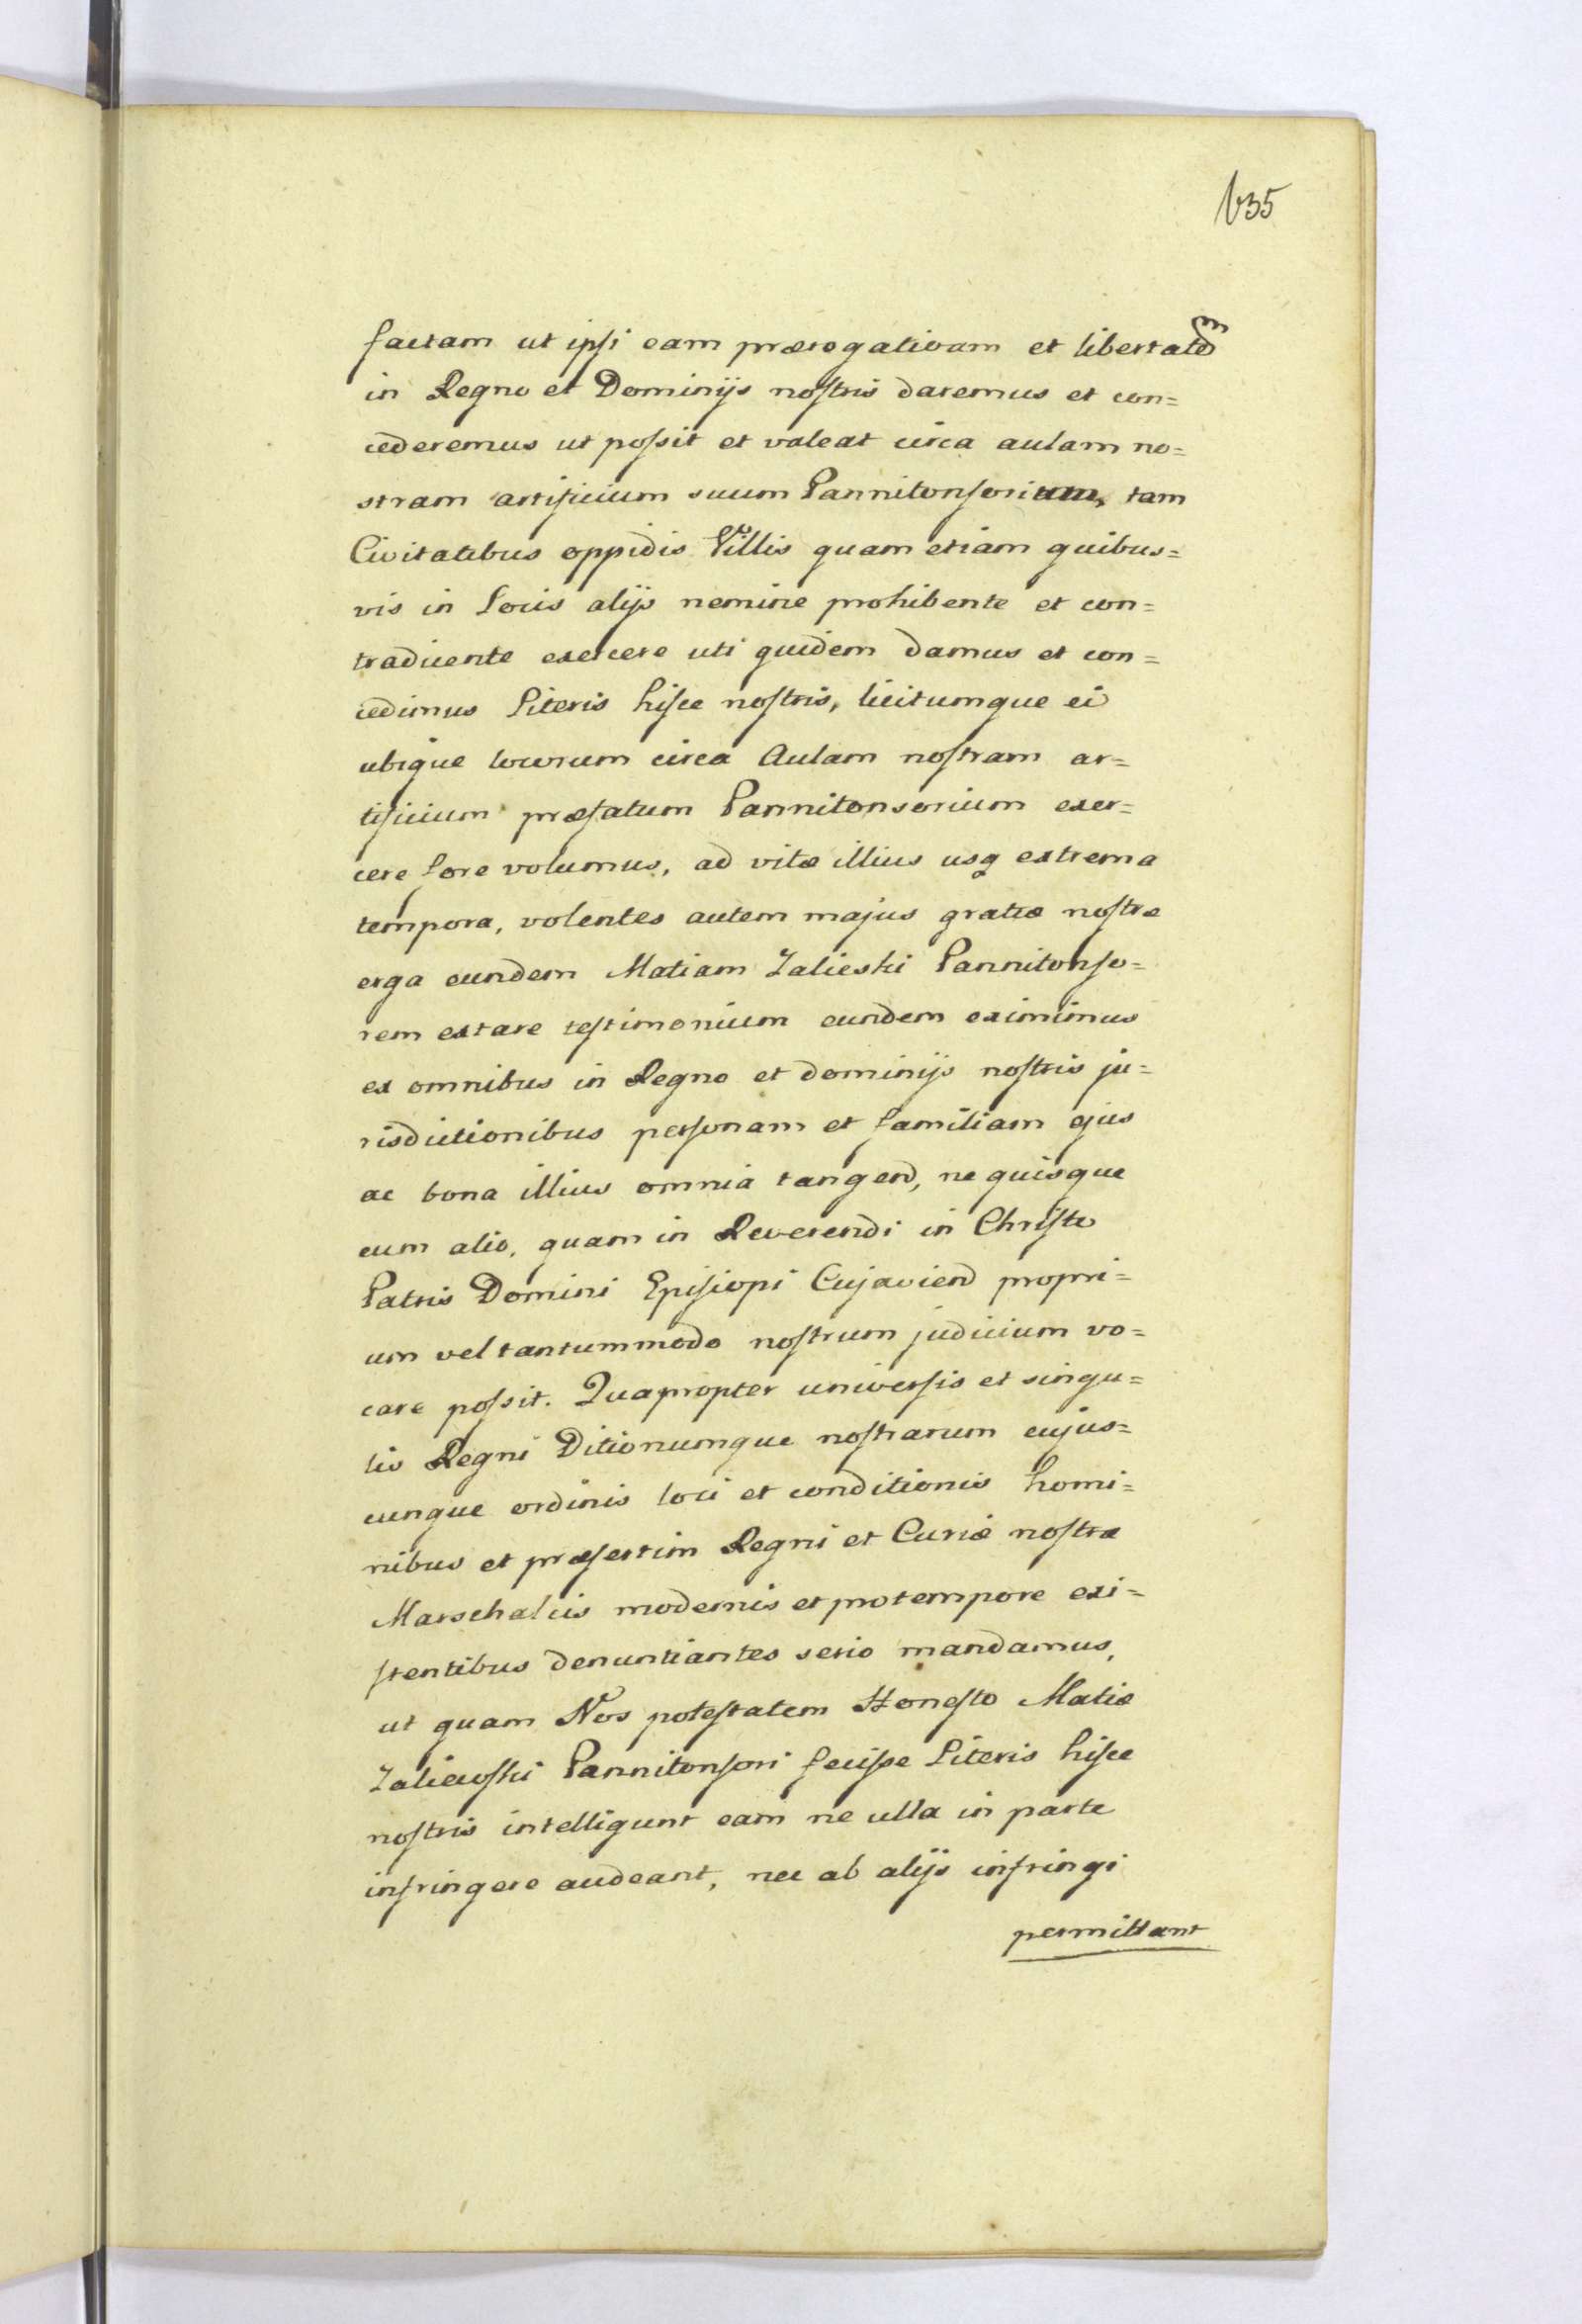 635
factam ut ipsi eam prærogativam et libertatem
in Regno et Dominijs nostris daremus et con=
cederemus ut possit et valeat circa aulam no=
stram artificium suum Pannitonsorium, tam
Civitatibus oppidis et Villis quam etiam quibus=
vis in locis alijs nemine prohibente et con=
tradicente exercere uti quidem damus et con=
cedimus Literis hisce nostris, licitumque ei
ubique locorum circa Aulam nostram ar=
tificium præfatum Pannitonsorium exer=
cere fore volumus, ad vitæ illius usq extrema
tempora, volentes autem majus gratiæ nostræ
erga eundem Matiam Zalieski Pannitonso=
rem extare testimonium eundem eximimus
ex omnibus in Regno et dominijs nostris ju=
risdictionibus personam et familiam ejus
ac bona illius omnia tangend, ne quisque
eum alio, quam in Reverendi in Christo
Patris Domini Episiopi Cujaviend propri=
um vel tantummodo nostrum judicium vo=
care possit. Quapropter universis et singu=
lis Regni Ditionumque nostrarum cujus=
cunque ordinis loci et conditionis homi=
nibus et præsertim Regni et Curiæ nostræ
Marschalcis modernis et protempore exi=
stentibus denuntiantes serio mandamus,
ut quam Nos potestatem Honesto Matiæ
Zaliewski Pannitonsori fecisse Literis hisce
nostris intelligunt eam ne ulla in parte
infringere audeant, nec ab alijs infringi
permittant